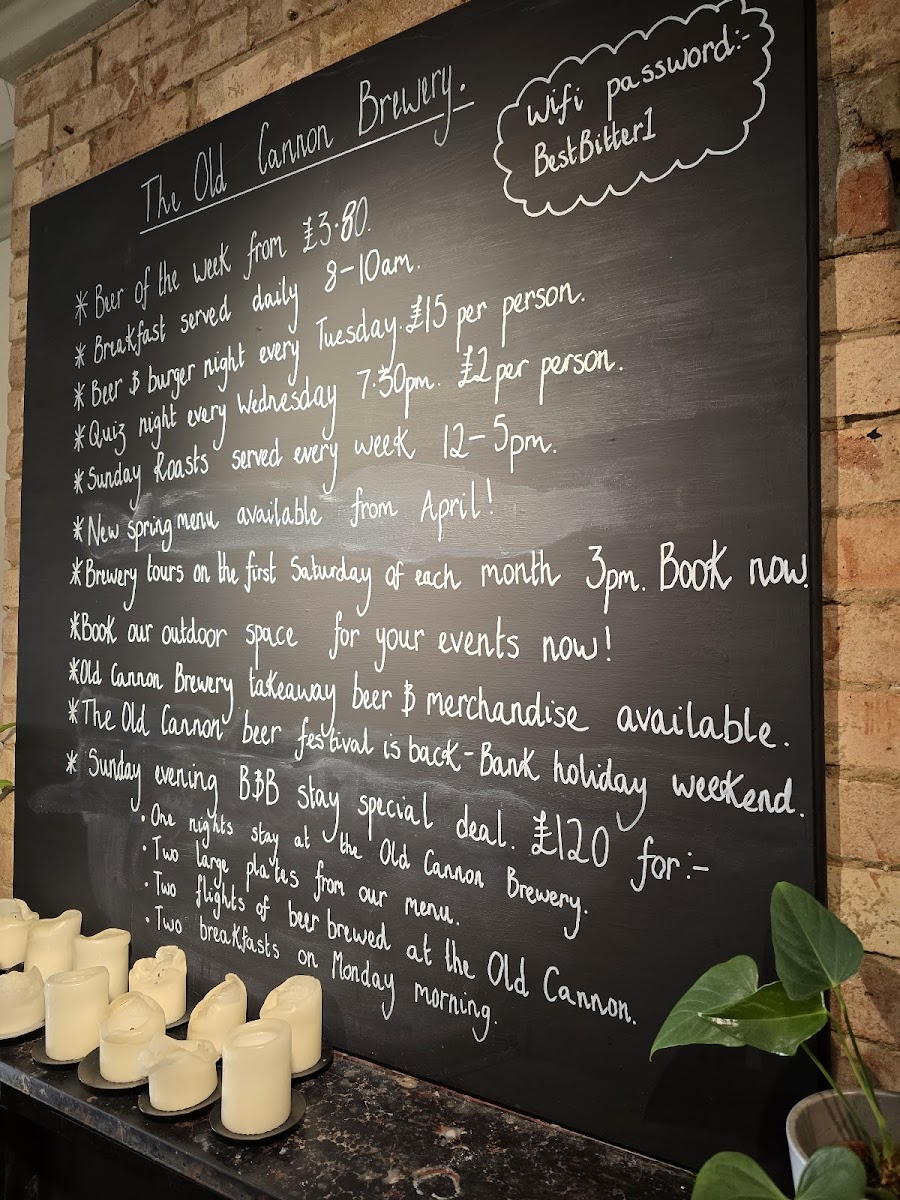 The Old Cannon Brewery.
Wifi password:-
BestBitter1
* Beer of the week from £3.80.
* Breakfast served daily 8-10am.
* Beer & burger night every Tuesday. £15 per person.
* Quiz night every Wednesday 7.30pm. £2 per person.
* Sunday Roasts served every week 12-5pm.
* New spring menu available from April!
* Brewery tours on the first Saturday of each month 3pm. Book now.
* Book our outdoor space for your events now!
* Old Cannon Brewery takeaway beer & merchandise available.
* The Old Cannon beer festival is back - Bank holiday weekend.
* Sunday evening B&B stay special deal. £120 for:-
· One nights stay at the Old Cannon Brewery.
· Two large plates from our menu.
· Two flights of beer brewed at the Old Cannon.
· Two breakfasts on Monday morning.